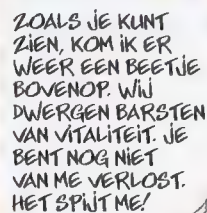 ZOALS JE KUNT
ZIEN, KOM IK ER
WEER EEN BEETJE
BOVENOP. WIJ
DWERGEN BARSTEN
VAN VITALITEIT. JE
BENT NOG NIET
VAN ME VERLOST.
HET SPIJT ME!